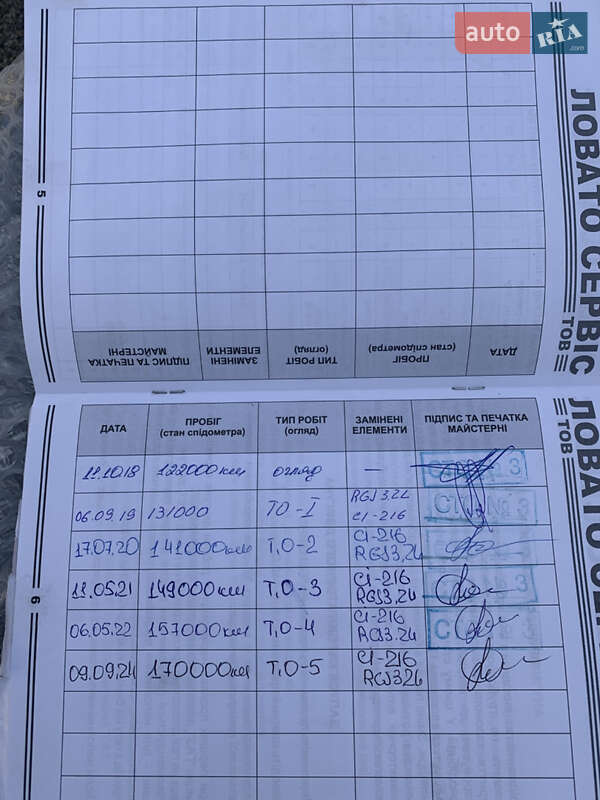 auto RIA .com
ЛОВАТО СЕРВІС
ТОВ
5
ДАТА
ПРОБІГ
(стан спідометра)
ТИП РОБІТ
(огляд)
ЗАМІНЕНІ
ЕЛЕМЕНТИ
ПІДПИС ТА ПЕЧАТКА
МАЙСТЕРНІ
ТОВ
ЛОВАТО СЕР
6
ДАТА
ПРОБІГ
(стан спідометра)
ТИП РОБІТ
(огляд)
ЗАМІНЕНІ
ЕЛЕМЕНТИ
ПІДПИС ТА ПЕЧАТКА
МАЙСТЕРНІ
122000 км огляд —
06.09.19 131000 ТО-I RGJ3.2L CI-216 СТО № 3
17.07.20 141000км Т,О-2 CI-216
11.05.21 149000км Т,О-3 CI-216 3
06.05.22 157000км Т,О-4 CI-216
09.09.24 170000км Т,О-5 CI-216